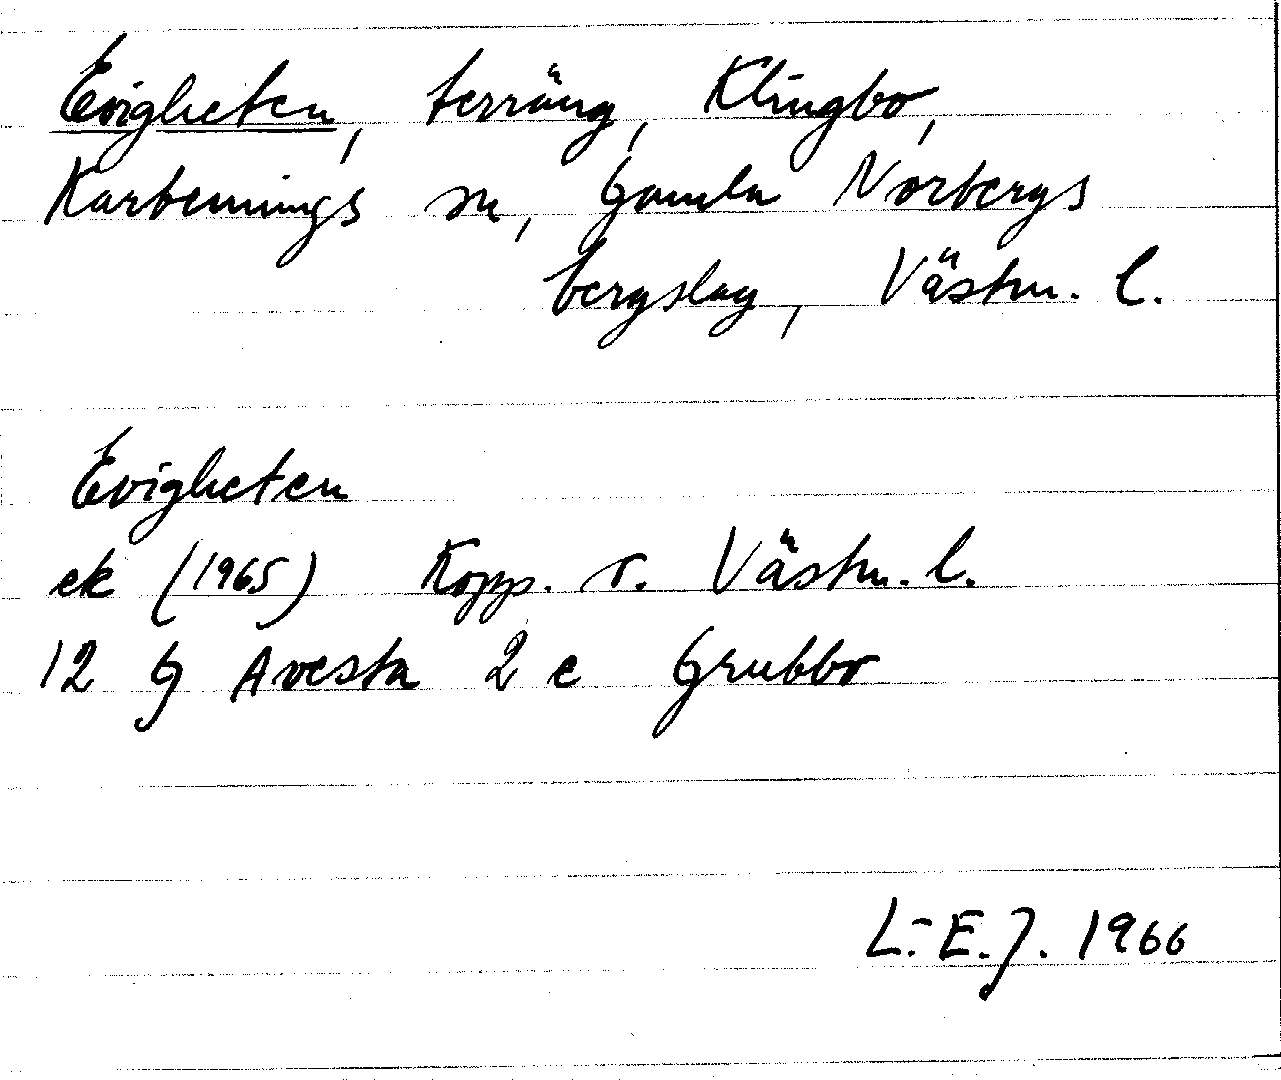 Evigheten, terräng, Klingbo,
Karbennings sn, Gamla Norbergs
bergslag, Västm. l.
Evigheten
ek (1965) Kopp. o. Västm. l.
12 G Avesta 2 e Grubbo
L.-E.J. 1966